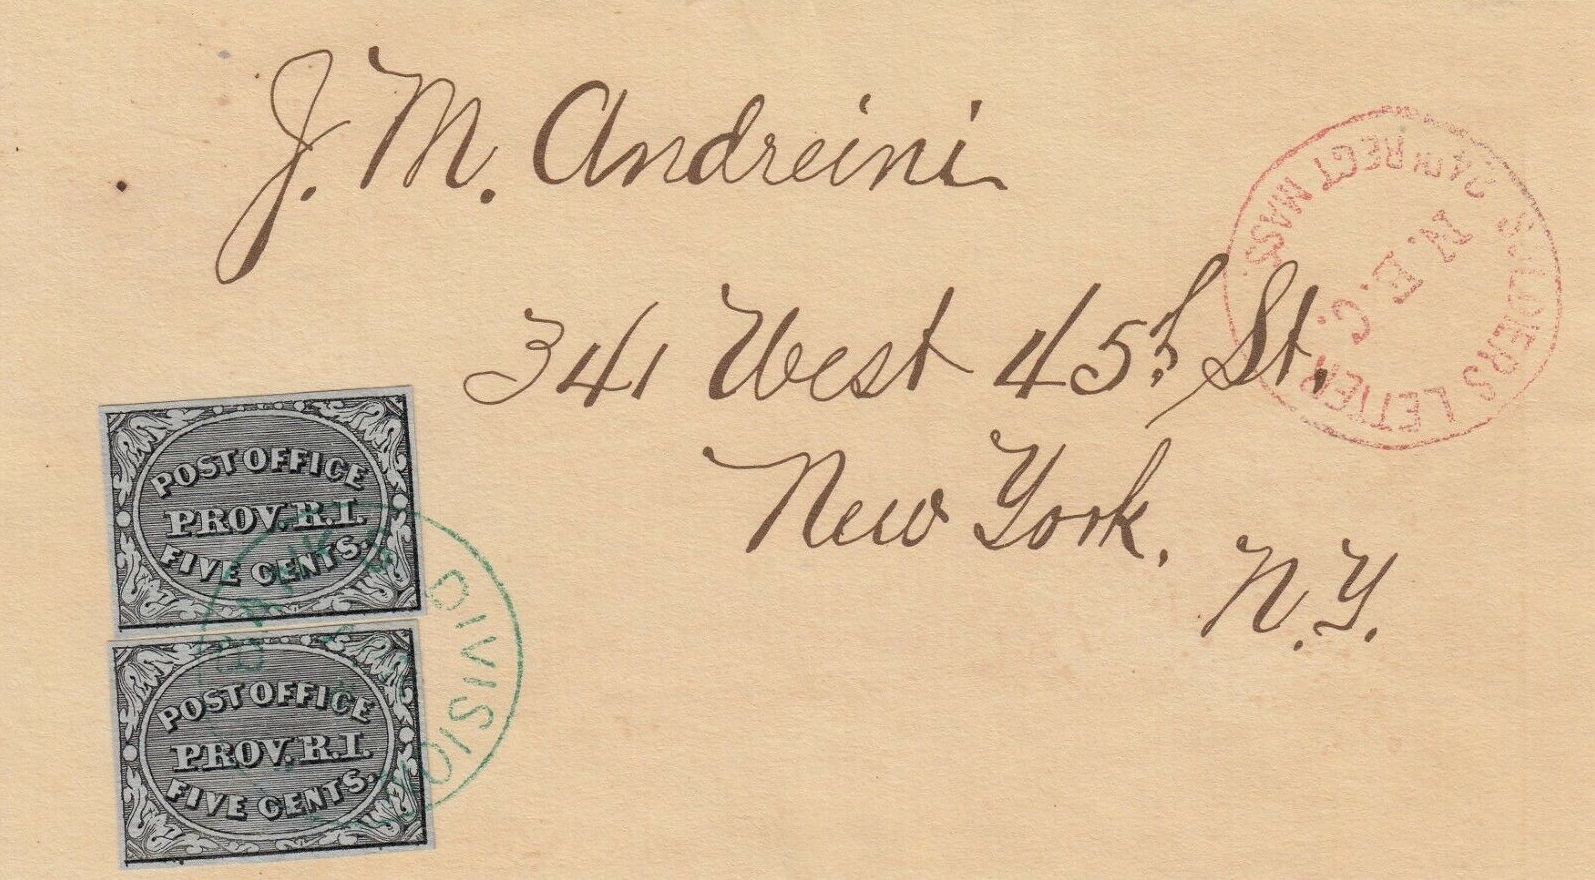 J. M. Andreini
341 West 45th St.
New York.
N.Y.
SOLDIERS LETTER
N. E. C.
24TH REGT MASS.
POST OFFICE
PROV. R.I.
FIVE CENTS.
POST OFFICE
PROV. R.I.
FIVE CENTS.
BANKS DIVISION